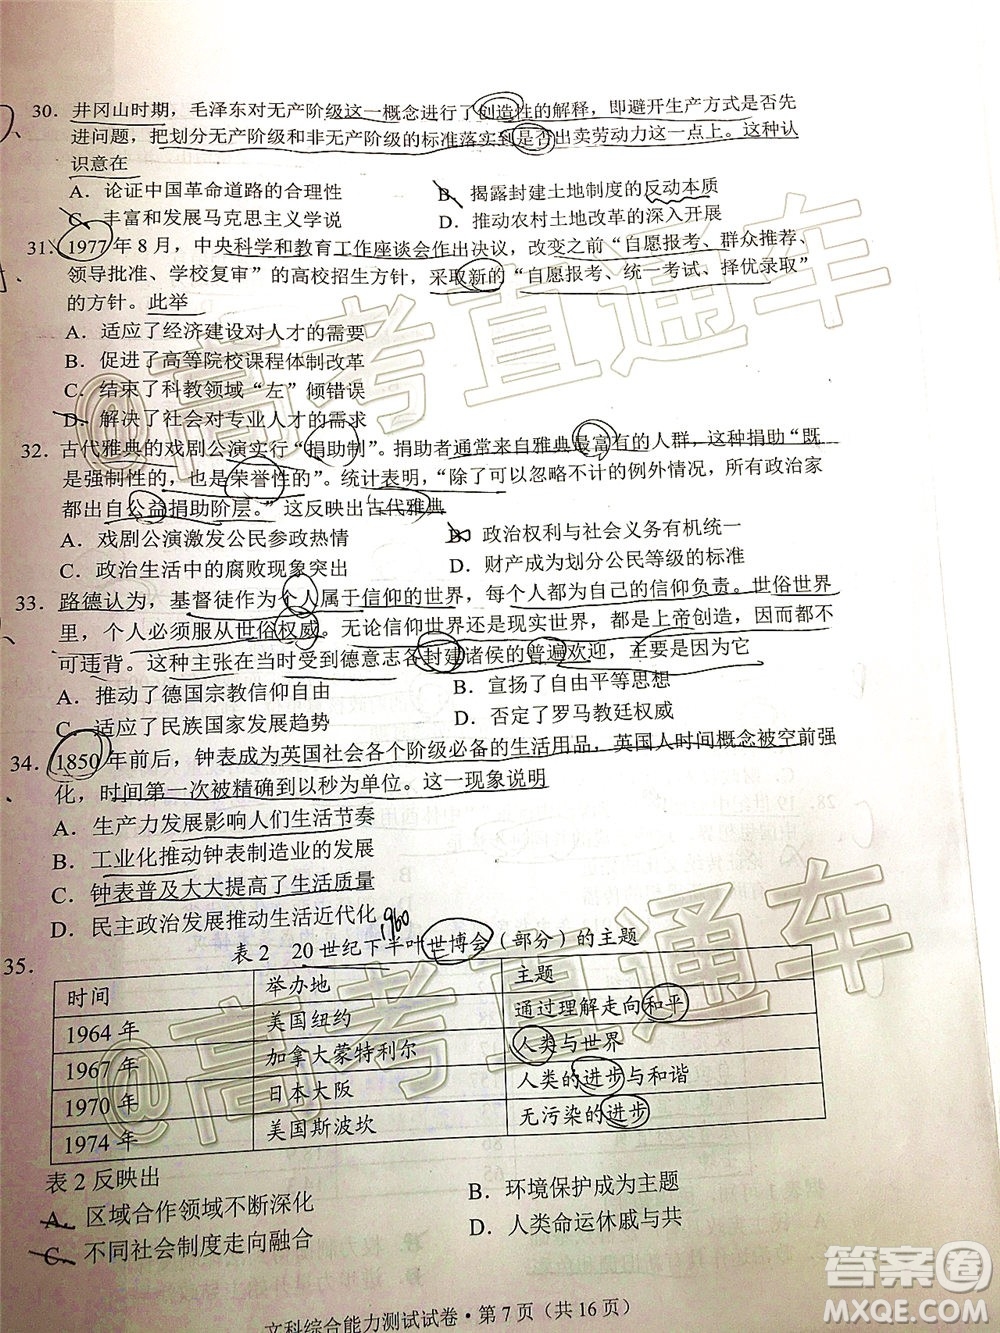 30. 井冈山时期，毛泽东对无产阶级这一概念进行了创造性的解释，即避开生产方式是否先
进问题，把划分无产阶级和非无产阶级的标准落实到是否出卖劳动力这一点上。这种认
识意在
A．论证中国革命道路的合理性 B．揭露封建土地制度的反动本质
C．丰富和发展马克思主义学说 D．推动农村土地改革的深入开展
31. 1977年8月，中央科学和教育工作座谈会作出决议，改变之前“自愿报考、群众推荐、
领导批准、学校复审”的高校招生方针，采取新的“自愿报考、统一考试、择优录取”
的方针。此举
A．适应了经济建设对人才的需要
B．促进了高等院校课程体制改革
C．结束了科教领域“左”倾错误
D．解决了社会对专业人才的需求
32. 古代雅典的戏剧公演实行“捐助制”。捐助者通常来自雅典最富有的人群，这种捐助“既
是强制性的，也是荣誉性的”。统计表明，“除了可以忽略不计的例外情况，所有政治家
都出自公益捐助阶层。”这反映出古代雅典
A．戏剧公演激发公民参政热情 B．政治权利与社会义务有机统一
C．政治生活中的腐败现象突出 D．财产成为划分公民等级的标准
33. 路德认为，基督徒作为个人属于信仰的世界，每个人都为自己的信仰负责。世俗世界
里，个人必须服从世俗权威。无论信仰世界还是现实世界，都是上帝创造，因而都不
可违背。这种主张在当时受到德意志各封建诸侯的普遍欢迎，主要是因为它
A．推动了德国宗教信仰自由 B．宣扬了自由平等思想
C．适应了民族国家发展趋势 D．否定了罗马教廷权威
34. 1850年前后，钟表成为英国社会各个阶级必备的生活用品，英国人时间概念被空前强
化，时间第一次被精确到以秒为单位。这一现象说明
A．生产力发展影响人们生活节奏
B．工业化推动钟表制造业的发展
C．钟表普及大大提高了生活质量
D．民主政治发展推动生活近代化
1960
35. 表2 20世纪下半叶世博会（部分）的主题
时间 举办地 主题
1964年 美国纽约 通过理解走向和平
1967年 加拿大蒙特利尔 人类与世界
1970年 日本大阪 人类的进步与和谐
1974年 美国斯波坎 无污染的进步
表2反映出
A．区域合作领域不断深化 B．环境保护成为主题
C．不同社会制度走向融合 D．人类命运休戚与共
文科综合能力测试试卷·第7页（共16页）
@高考直通车
@高考直通车
答案圈
MXQE.COM